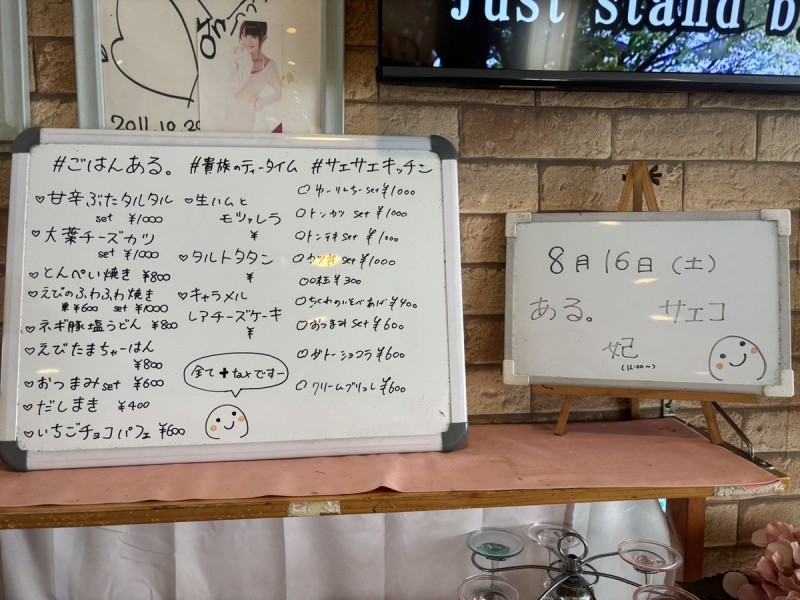 Just stand b
2011.10.29
#ごはんある。
♡甘辛ぶたタルタル
set ¥1000
♡大葉チーズカツ
set ¥1000
♡とんぺい焼き ¥800
♡えびのふわふわ焼き
単¥600 set ¥1000
♡ネギ豚塩うどん ¥800
♡えびたまちゃーはん
¥800
♡おつまみset ¥600
♡だしまき ¥400
♡いちごチョコパフェ ¥600
#貴族のティータイム
♡生ハムと
モツァレラ
¥
♡タルトタタン
¥
♡キャラメル
レアチーズケーキ
¥
全て+taxですー
#サエサエキッチン
○ゆーりんちーset ¥1000
○トンカツ set ¥1000
○トンテキ set ¥1000
○カツ set ¥1000
¥300
○ちくわのいそべあげ ¥400
○おつまみ set ¥600
○ガトーショコラ ¥600
○クリームブリュレ ¥600
8月16日(土)
ある。 サエコ
妃
(12:00~)